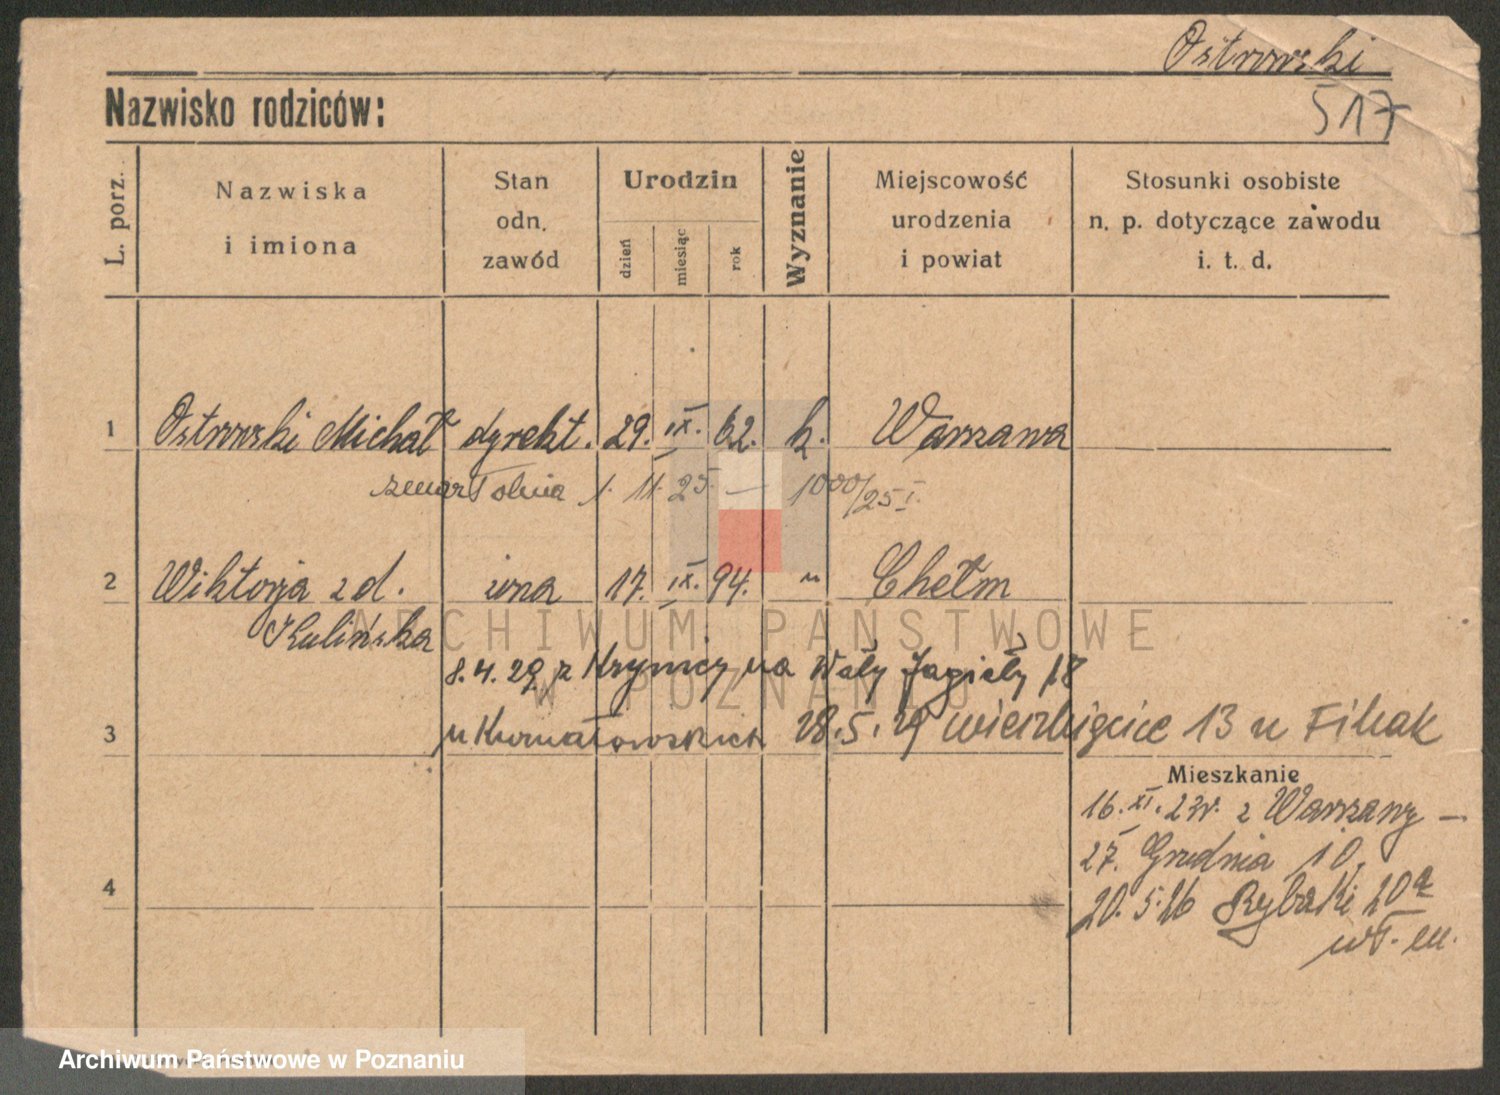 Ostrowski
517
Nazwisko rodziców:
L. porz.
Nazwiska
i imiona
Stan
odn.
zawód
Urodzin
dzień
miesiąc
rok
Wyznanie
Miejscowość
urodzenia
i powiat
Stosunki osobiste
n. p. dotyczące zawodu
i. t. d.
1 Ostrowski Michał dyrekt. 29. IX. 62. k. Warszawa
zmarł dnia 1. II. 25. — 1000/25 I.
2 Wiktorja z d. żona 17. IX. 94. " Chełm
Kulińska
8.4.29 z Krynicy na Wały Jagieły 18
3 u 28.5.29 Wierzbięcice 13 u Fibak
Mieszkanie
16. XI. 23r. z Warszawy —
27. Grudnia 10.
4
20. 5. 26 Rybaki 20a
wł. m.
ARCHIWUM PAŃSTWOWE
W POZNANIU
Archiwum Państwowe w Poznaniu